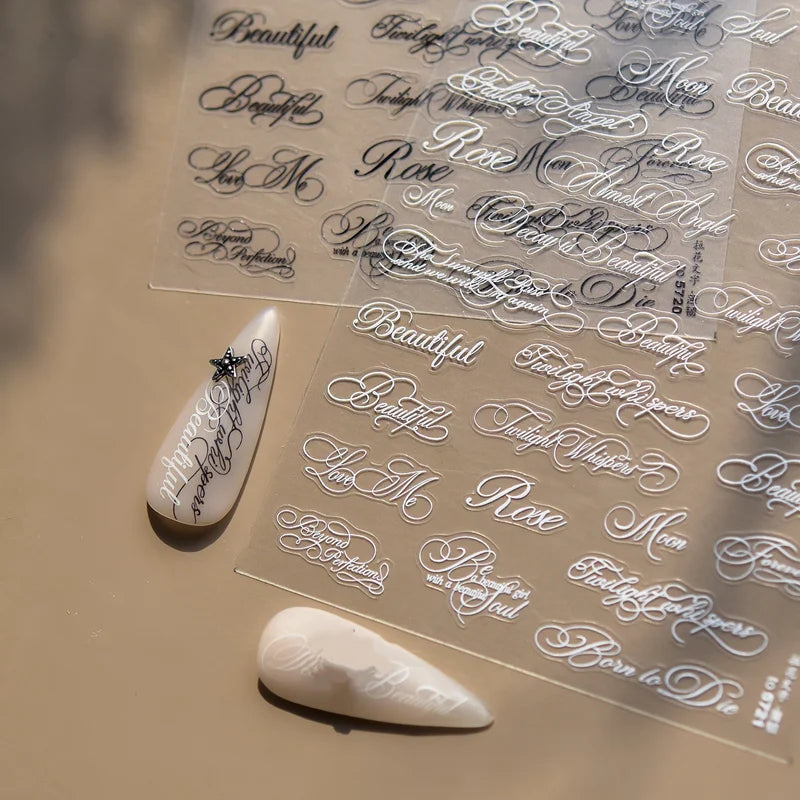 Beautiful
Twilight whispers
Beautiful
Twilight Whispers
Love Me
Rose
Moon
Forever
Beyond
Perfection
Be
with a beautiful
to Die
5720
Beautiful
Love
Soul
Soul
Moon
Beautiful
Beautiful
Fallen Angel
Rose
Rose
Almost Angle
Moon
Decay is Beautiful
and we will
again
Beautiful
Twilight whispers
Beautiful
Twilight W
Beautiful
Twilight Whispers
Love
Love Me
Rose
Moon
Beautiful
Beyond
Perfection
Be
a beautiful girl
with a beautiful
Soul
Twilight whispers
Forever
Born to Die
5721
Twilight whispers
Beautiful
Beautiful